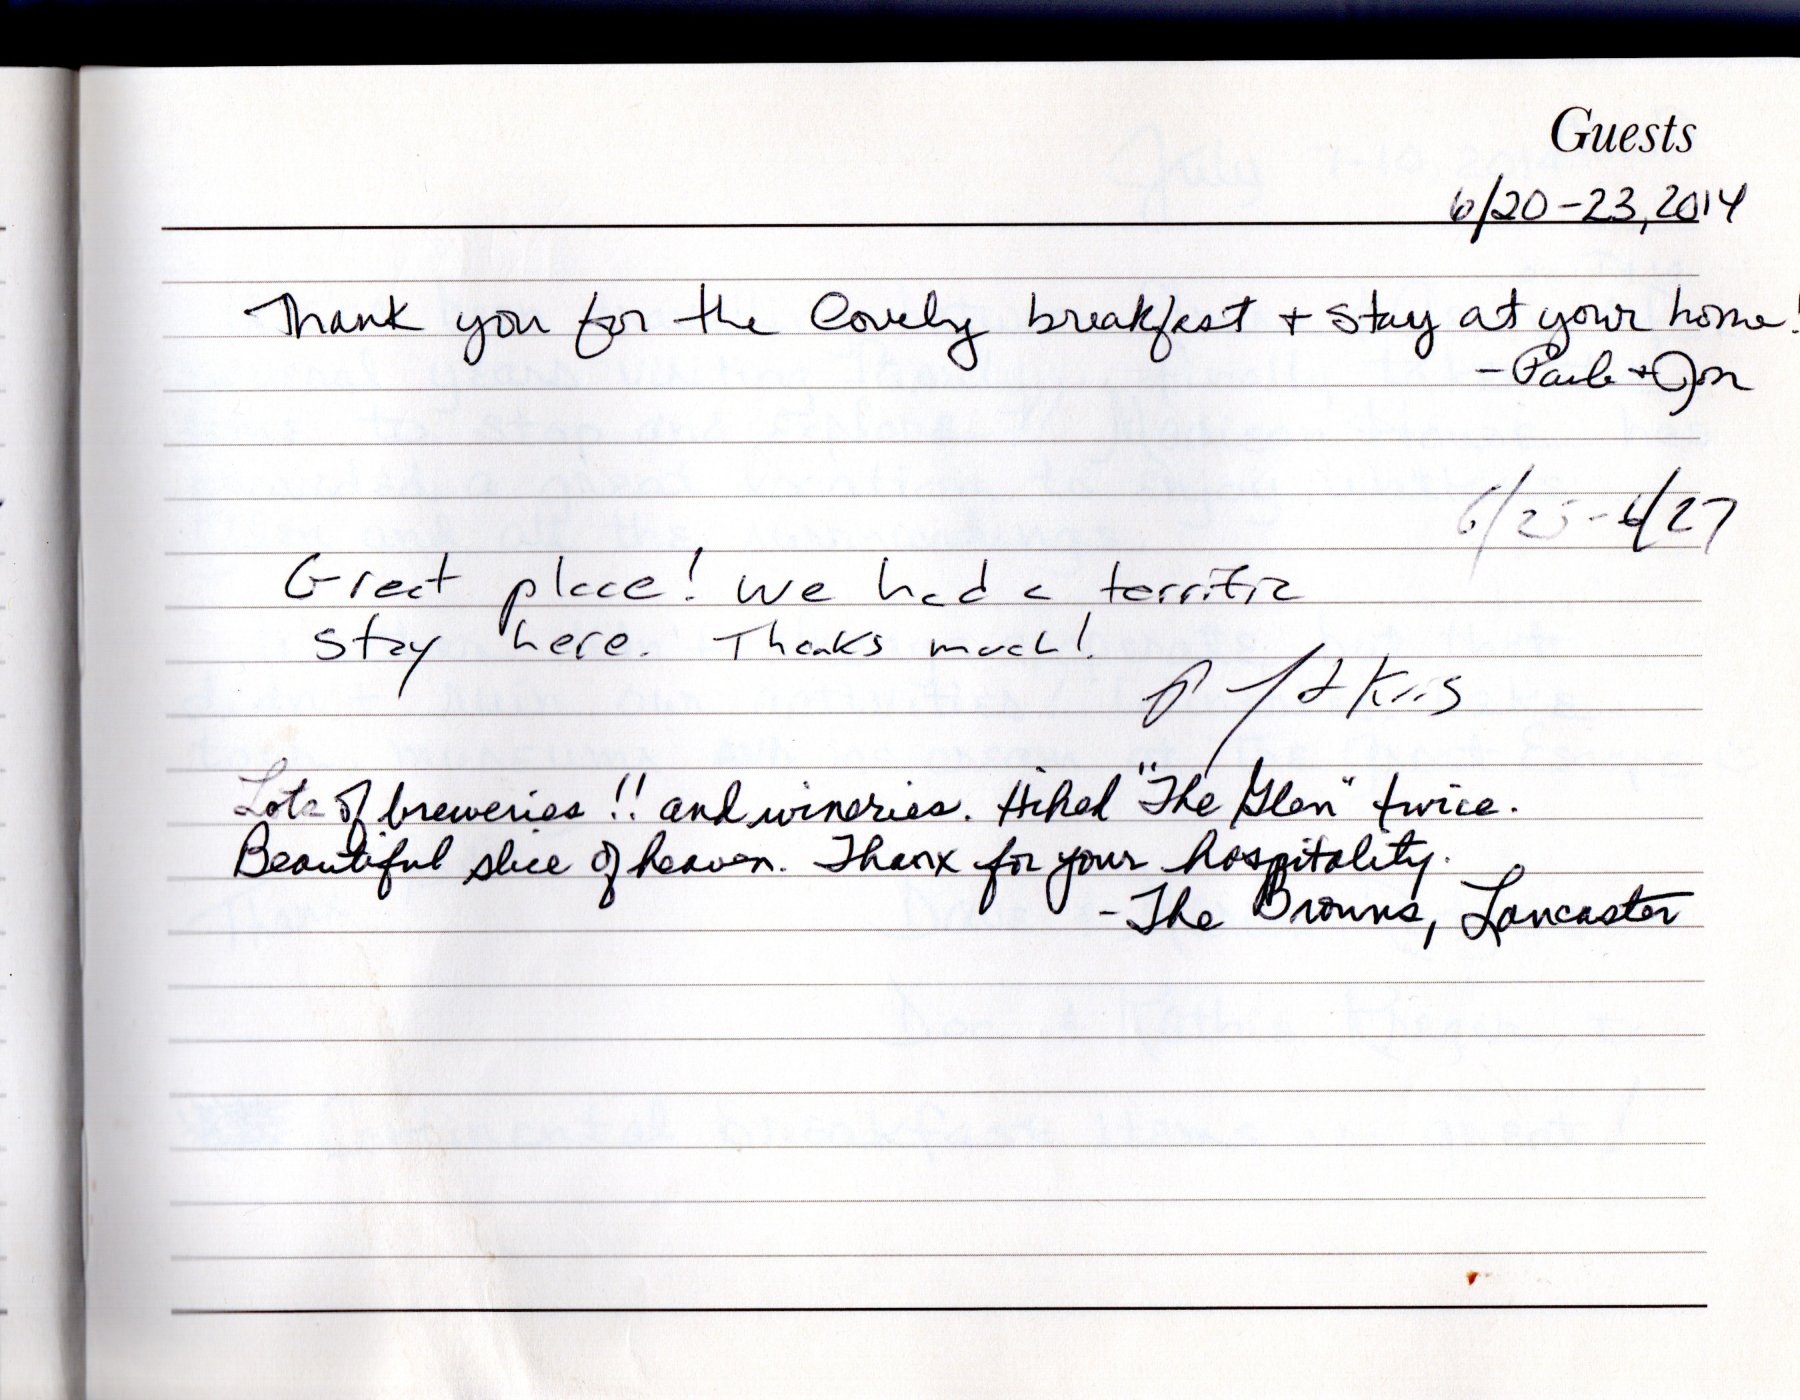 Guests
6/20-23, 2014
Thank you for the lovely breakfast + stay at your home!
- Paula + Jon
6/25-6/27
Great place! We had a terrific
stay here. Thanks much!
+ Kris
Lots of breweries!! and wineries. Hiked "The Glen" twice.
Beautiful slice of heaven. Thanx for your hospitality.
- The Browns, Lancaster